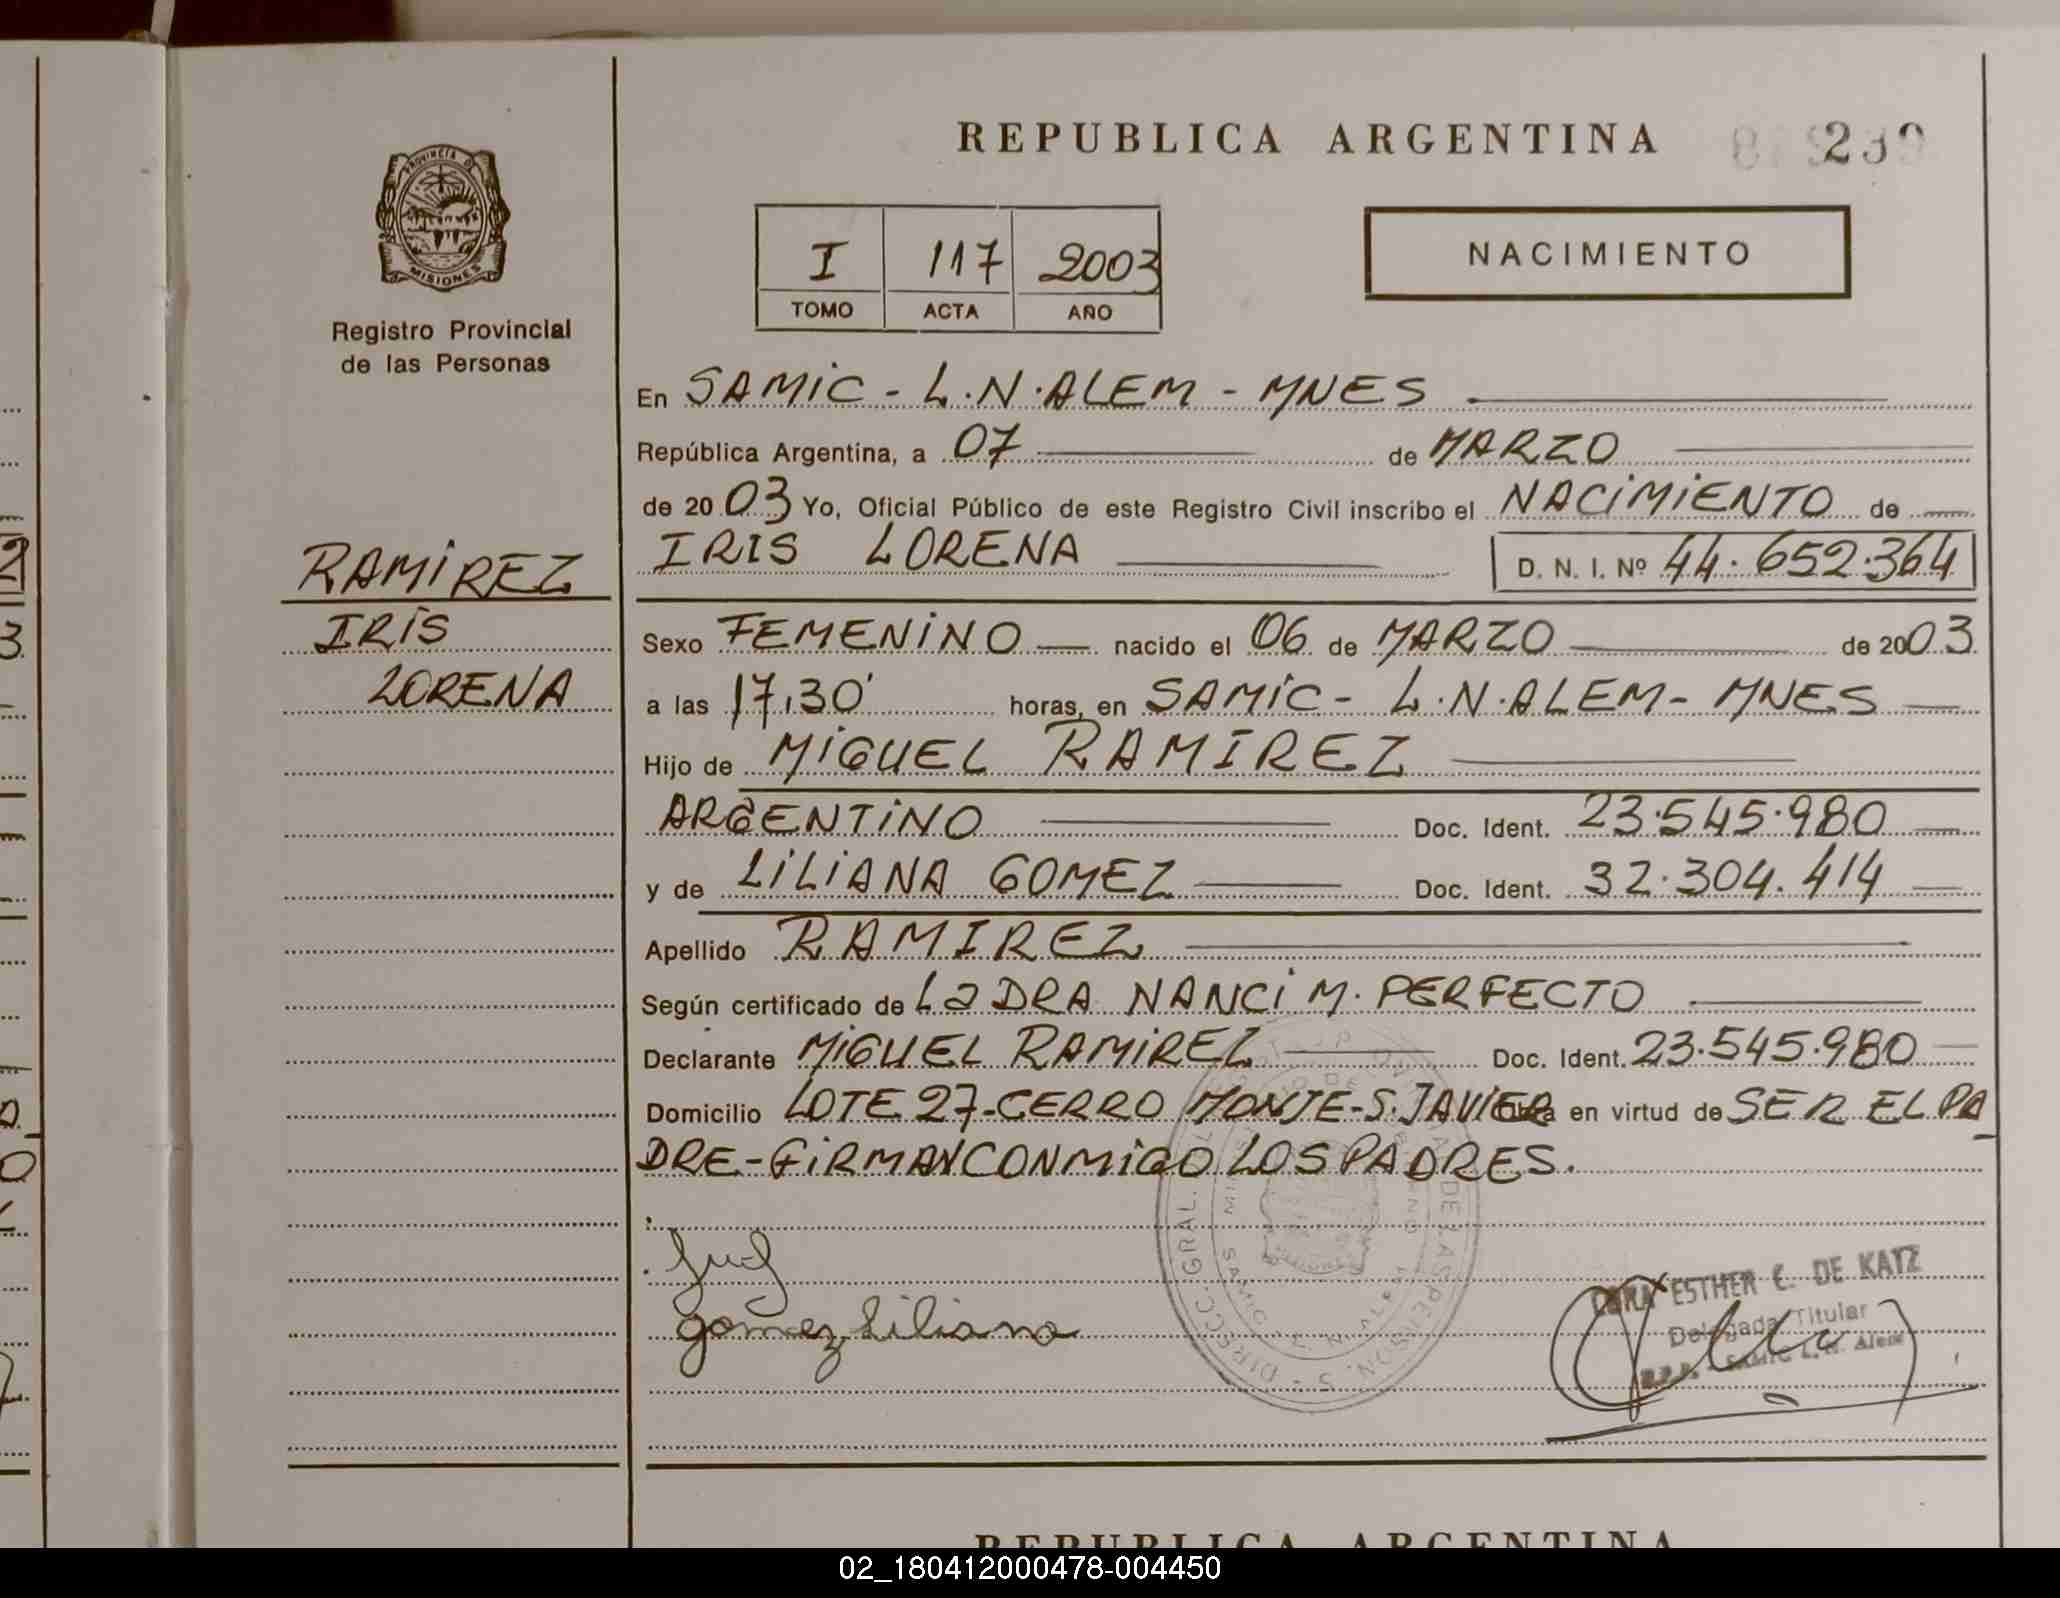 REPUBLICA ARGENTINA
PROVINCIA DE
MISIONES
Registro Provincial
de las Personas
I 117 2003
TOMO ACTA AÑO
NACIMIENTO
En SAMIC - L.N.ALEM - MNES
República Argentina, a 07 de MARZO
de 2003 Yo, Oficial Público de este Registro Civil inscribo el NACIMIENTO de
IRIS LORENA D. N. I. Nº 44.652.364
RAMIREZ
IRIS
LORENA
Sexo FEMENINO nacido el 06 de MARZO de 2003
a las 17,30' horas, en SAMIC - L.N.ALEM - MNES
Hijo de MIGUEL RAMIREZ
ARGENTINO Doc. Ident. 23.545.980
y de LILIANA GOMEZ Doc. Ident. 32.304.414
Apellido RAMIREZ
Según certificado de La DRA NANCI M. PERFECTO
Declarante MIGUEL RAMIREZ Doc. Ident. 23.545.980
Domicilio LOTE 27-CERRO MONJE-S.JAVIER Obra en virtud de SER EL PA
DRE-FIRMAN CONMIGO LOS PADRES.
gomez Liliana
ESTHER C. DE KATZ
Delegada Titular
R.P.P. - SAMIC L. N. Alem
REPUBLICA ARGENTINA
02_180412000478-004450